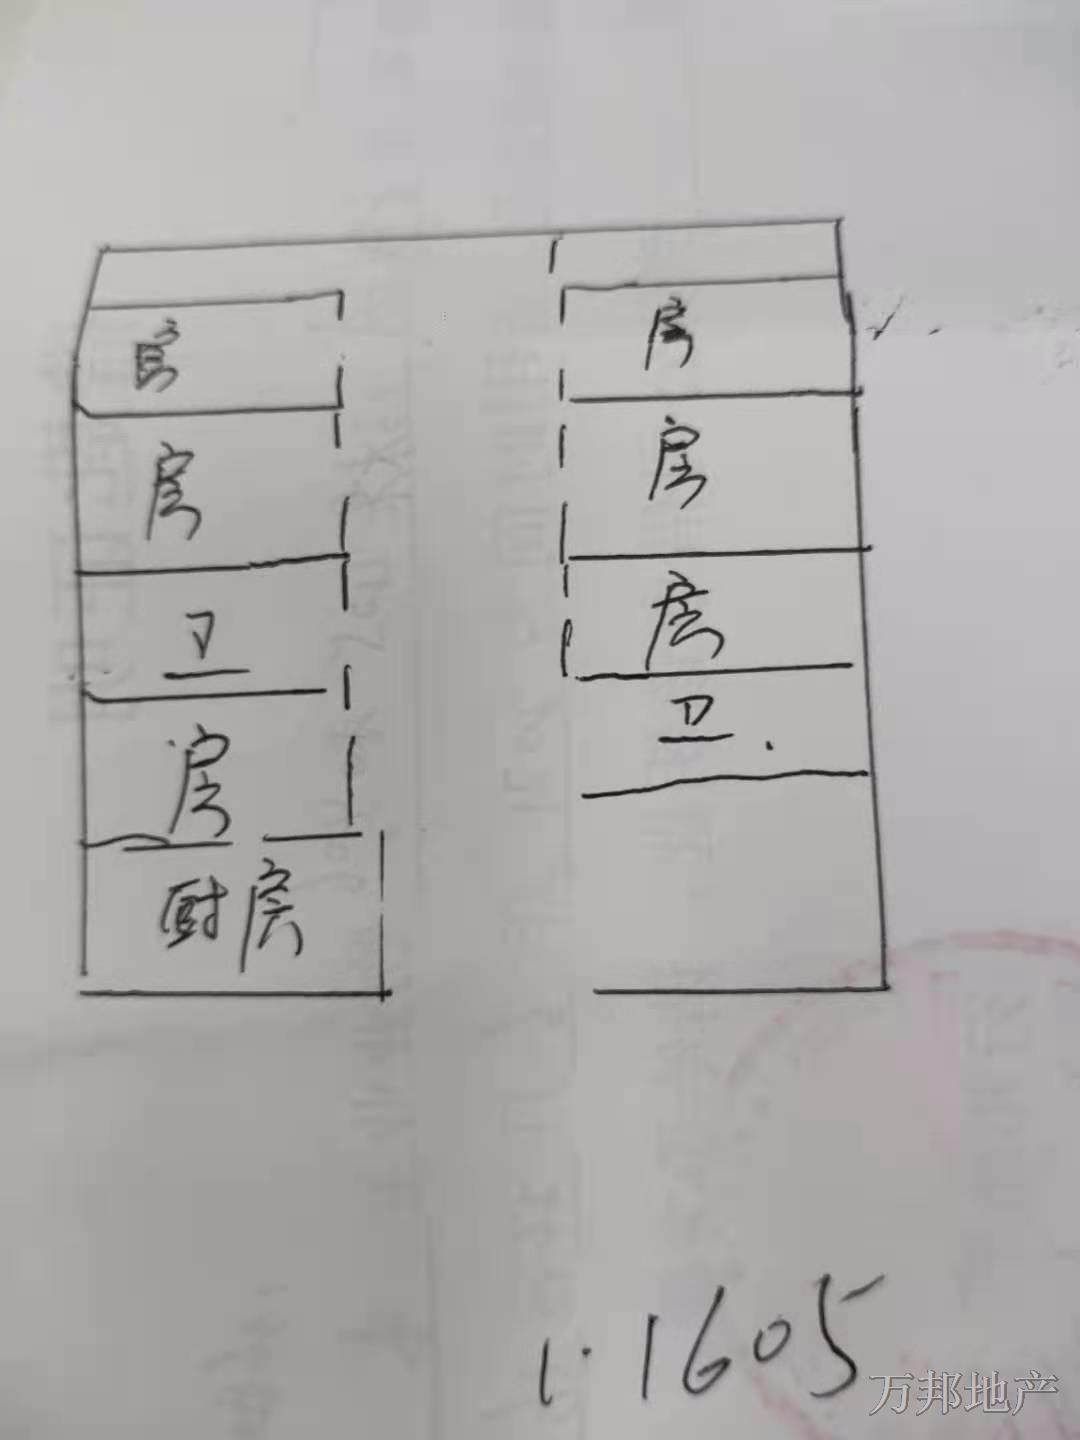 房
房
房
房
卫
房
房
卫
厨房
1.1605
万邦地产